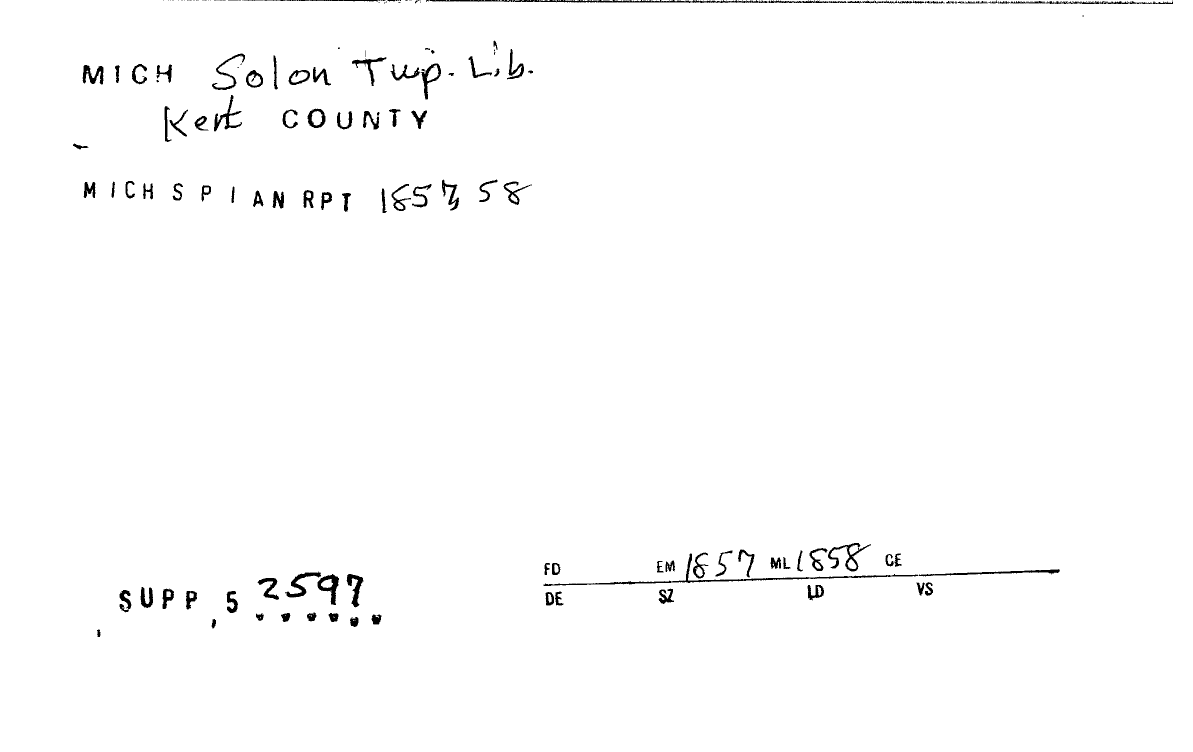 MICH Solon Twp. Lib.
Kent COUNTY
MICH S P I AN RPT 1857, 58
SUPP, 5 2597
FD EM 1857 ML 1858 CE
DE SZ LD VS